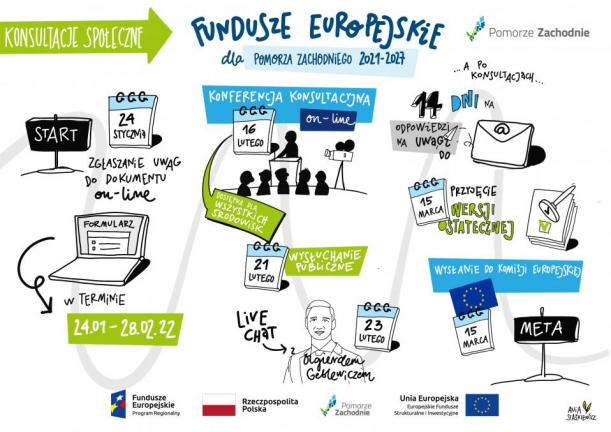 KONSULTACJE SPOŁECZNE
FUNDUSZE EUROPEJSKIE
dla POMORZA ZACHODNIEGO 2021-2027
Pomorze Zachodnie
START
24
STYCZNIA
ZGŁASZANIE UWAG
DO DOKUMENTU
on-line
FORMULARZ
W TERMINIE
24.01 - 28.02.22
KONFERENCJA KONSULTACYJNA
on-line
16
LUTEGO
DOSTĘPNA DLA
WSZYSTKICH
ŚRODOWISK
21
LUTEGO
WYSŁUCHANIE
PUBLICZNE
LIVE
CHAT
z
Olgierdem
Geblewiczem
23
LUTEGO
...A PO
KONSULTACJACH...
14 DNI NA
ODPOWIEDZI
NA UWAGI
DO
@
15
MARCA
PRZYJĘCIE
WERSJI
OSTATECZNEJ
V
WYSŁANIE DO KOMISJI EUROPEJSKIEJ
15
MARCA
META
Fundusze
Europejskie
Program Regionalny
Rzeczpospolita
Polska
Pomorze
Zachodnie
Unia Europejska
Europejskie Fundusze
Strukturalne i Inwestycyjne
ANIA